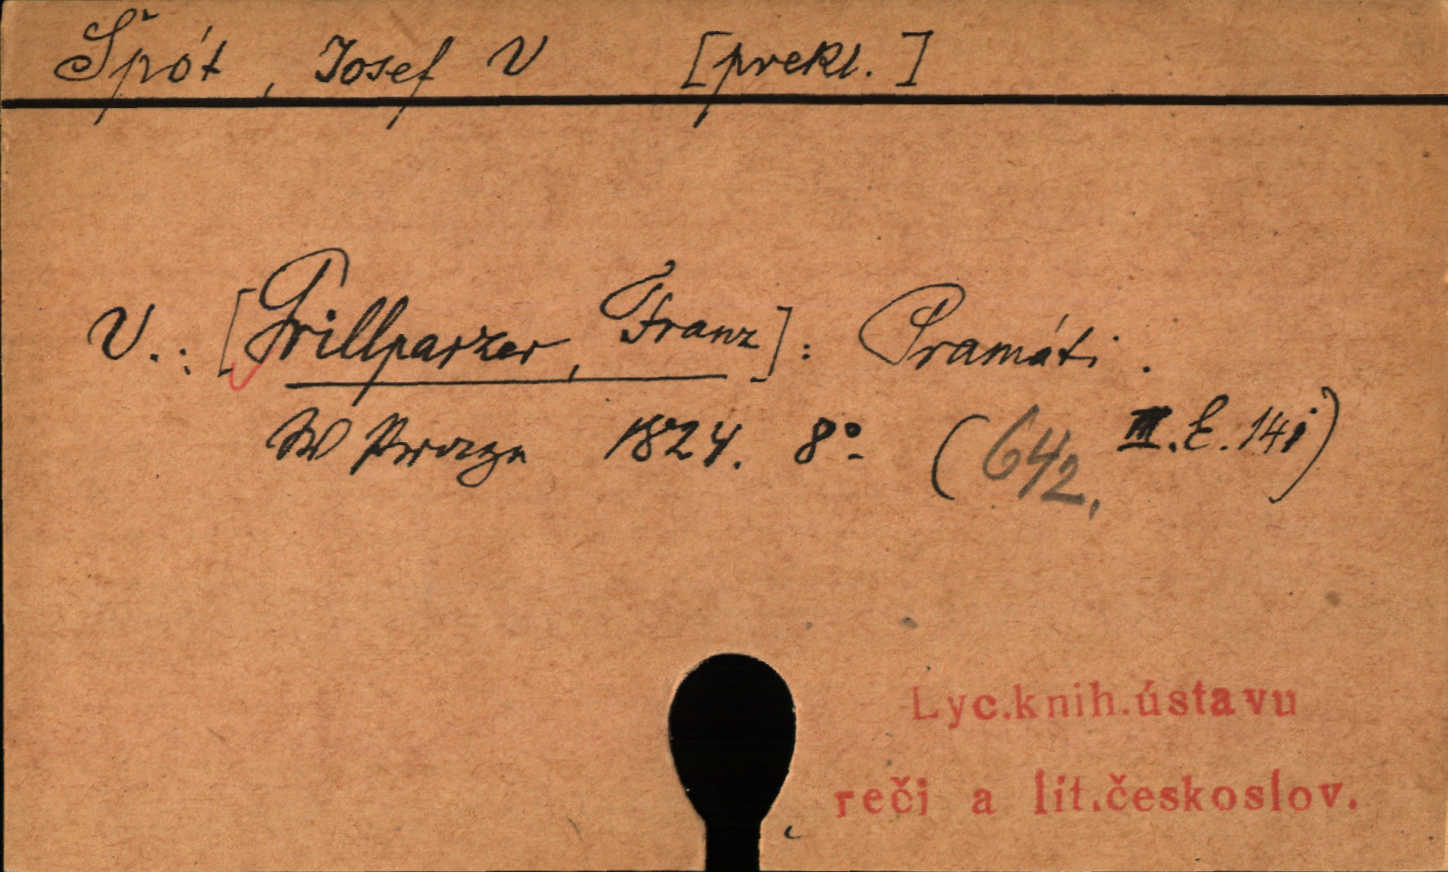 Špót, Josef V [prekl.]
V.: [Grillparzer, Franz]: Pramáti.
W Praze 1824. 8° (642, II.E.14i)
Lyc.knih.ústavu
reči a lit.českoslov.